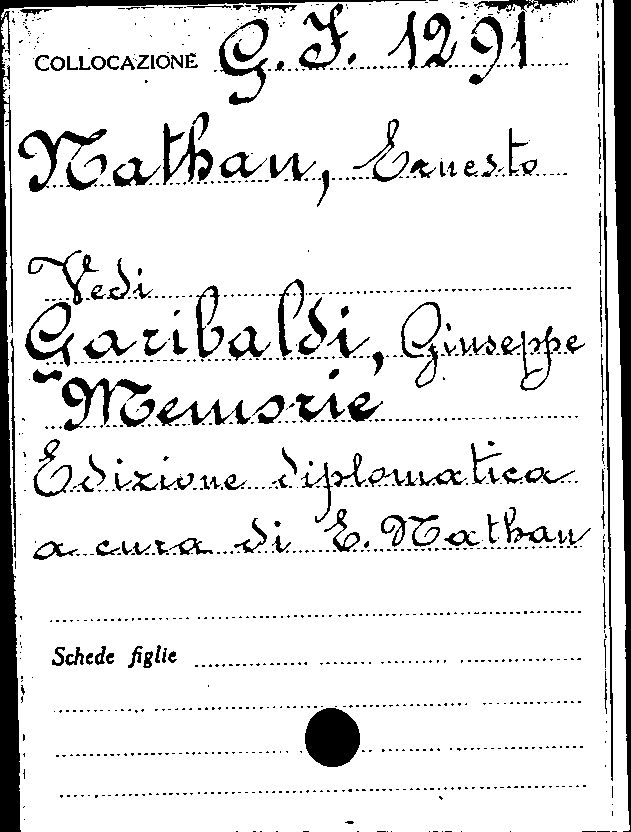 COLLOCAZIONE G. F. 1291
Nathan, Ernesto
Vedi
Garibaldi, Giuseppe
"Memorie
Edizione diplomatica
a cura di E. Nathan
Schede figlie